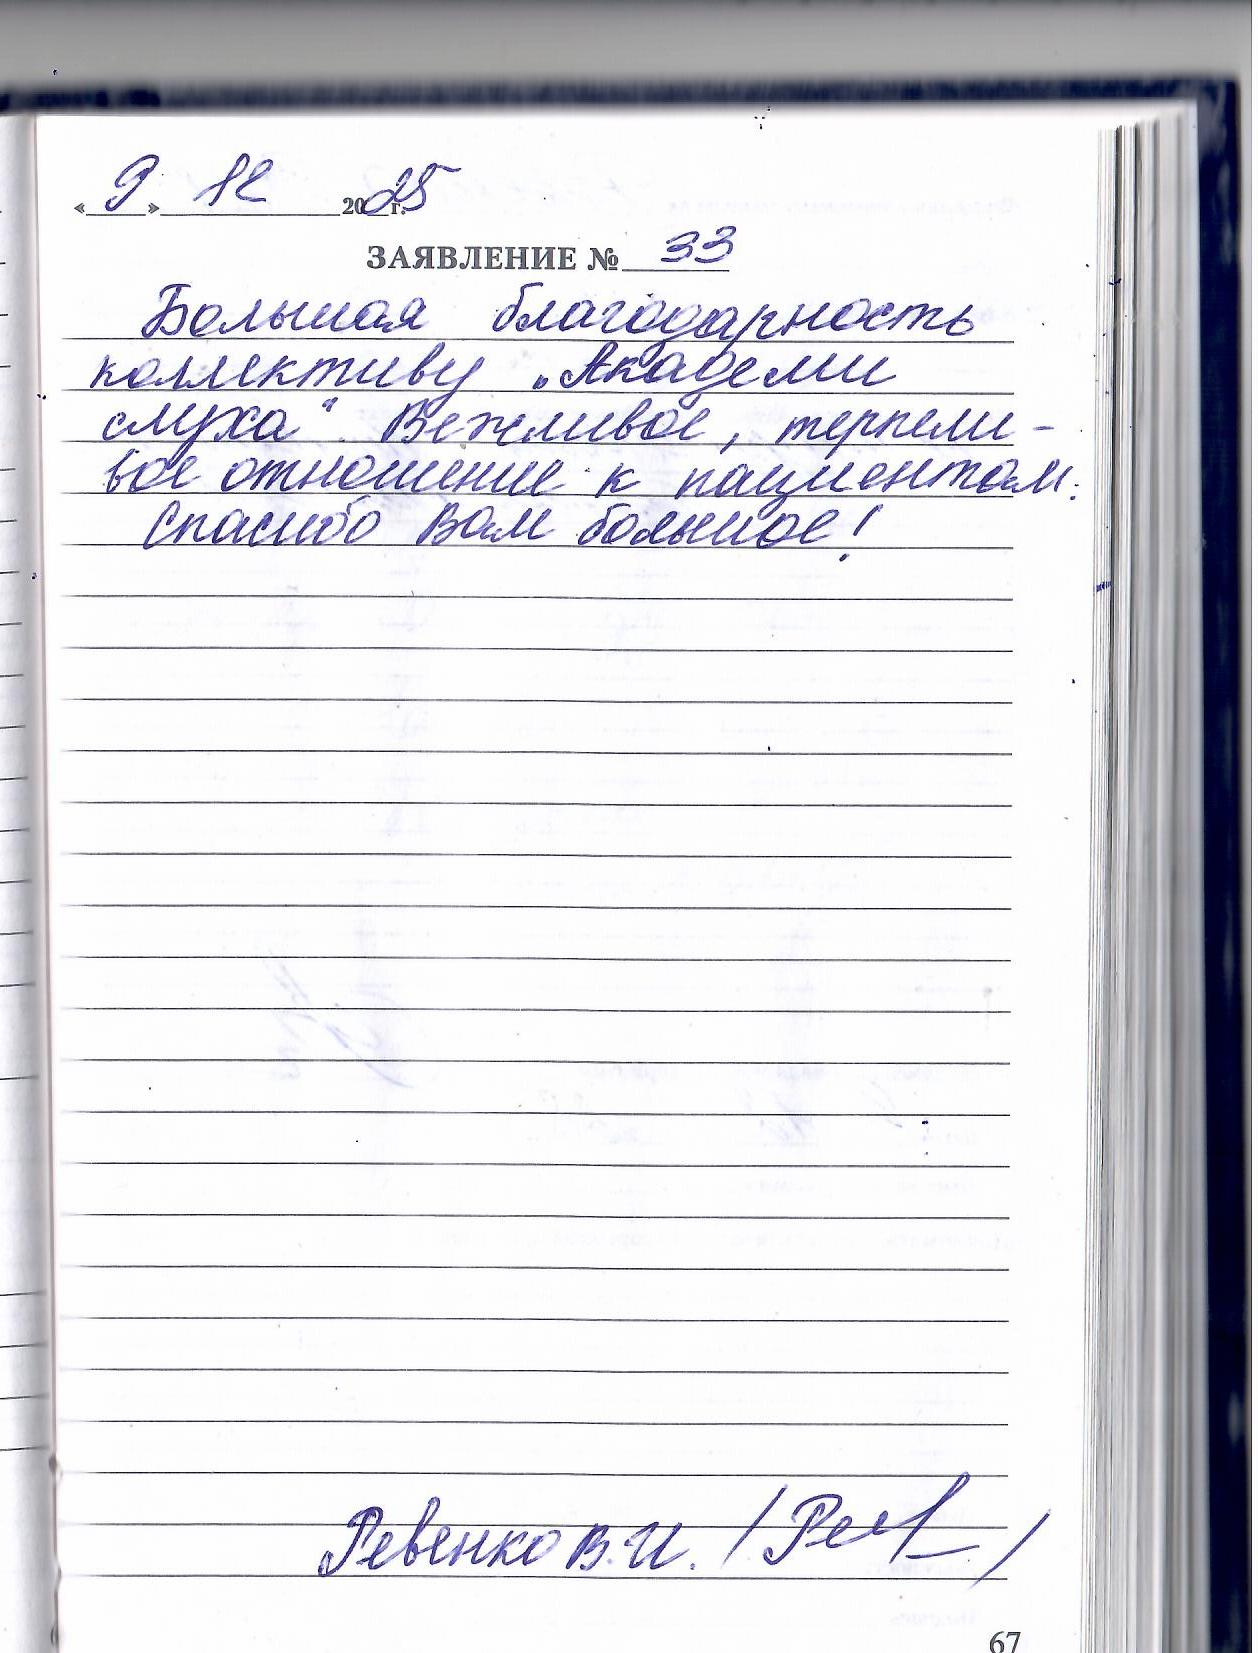 « 9 » 12 2025 г.
ЗАЯВЛЕНИЕ № 33
Большая благодарность
коллективу „Академи
слуха“. Вежливое, терпели-
вое отношение к пациентам.
Спасибо Вам большое!
Ревенко В.И. / /
67